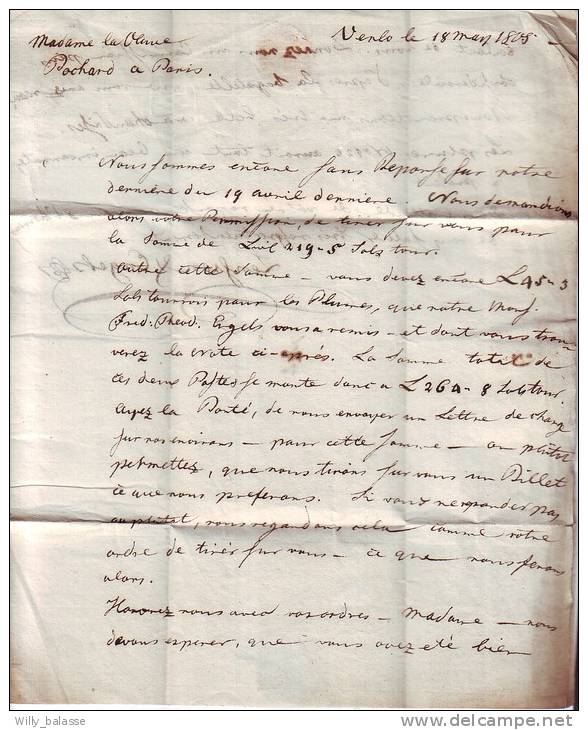 Madame la Veuve
Pochard a Paris.
Venlo le 18 May 1805
Nous sommes encore sans Reponse sur notre
derniére du 19 avril derniére Nous demandions
alors votre Permission, de tirér sur vous pour
la Somme de 219-5 Sols tour.
outre cette Somme — vous devez encore L 45-3
Sols tournois pour les Plumes, que notre Monf.
Fred: Theod. Engels vous a remis — et dont vous trou
verez la Note ci-aprés. La Somme totale de
ces deux Postes se monte donc a L 264-8 Sols tour.
ayez la Bonté, de nous envoyer un Lettre de chang
sur nos environs — pour cette somme — ou plûtot
permettez, que nous tirons sur vous un Billet
ce que nous preferons. Si vous ne repondez pas
au plutot, nous regardons cela comme votre
ordre de tirér sur vous — ce que nous ferons
alors.
Honorez nous avec vos ordres — Madame — nous
devons esperer, que vous avez été bien
Willy_balasse
delcampe.net